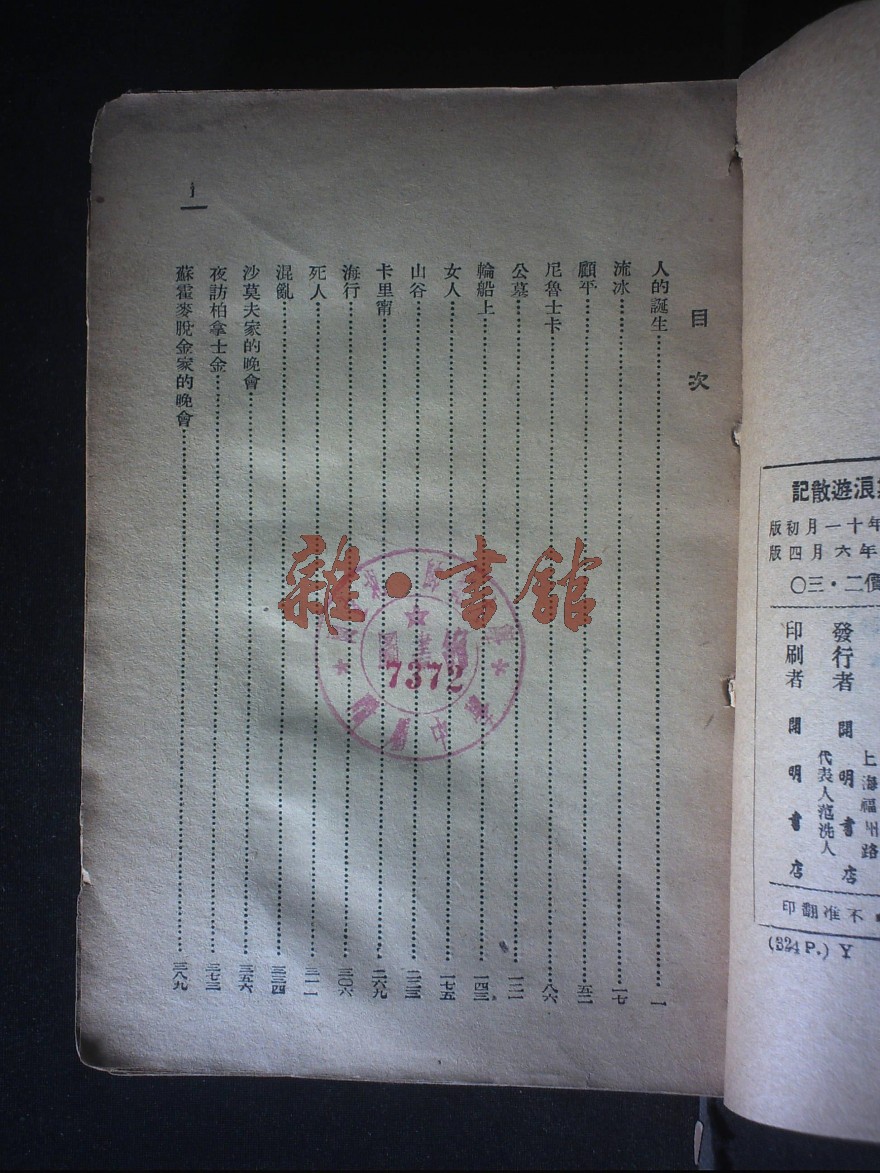 目次
人的誕生 一
流冰 一七
顧平 五二
尼魯士卡 八六
公墓
輪船上 一四三
女人 一七五
山谷
卡里甯 二六九
海行 三〇六
死人 三一一
混亂 三三四
沙莫夫家的晚會 三五六
夜訪柏拿士金 三七三
蘇霍麥脫金家的晚會 三八九
雜·書館
7372
浪遊散記
年十一月初版
年六月四版
價二·三〇
發行者 開明書店
上海福州路
代表人范洗人
印刷者 開明書店
不准翻印
(324 P.) Y